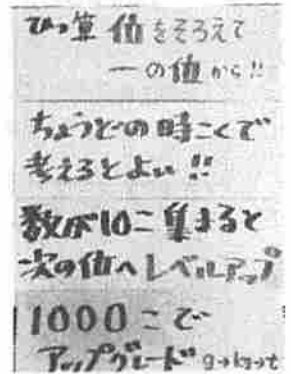 ひっ算 位をそろえて
一の位から!!
ちょうどの時こくで
考えるとよい!!
数が10こ集まると
次の位へレベルアップ
1000こで
アップグレード g→kg→t